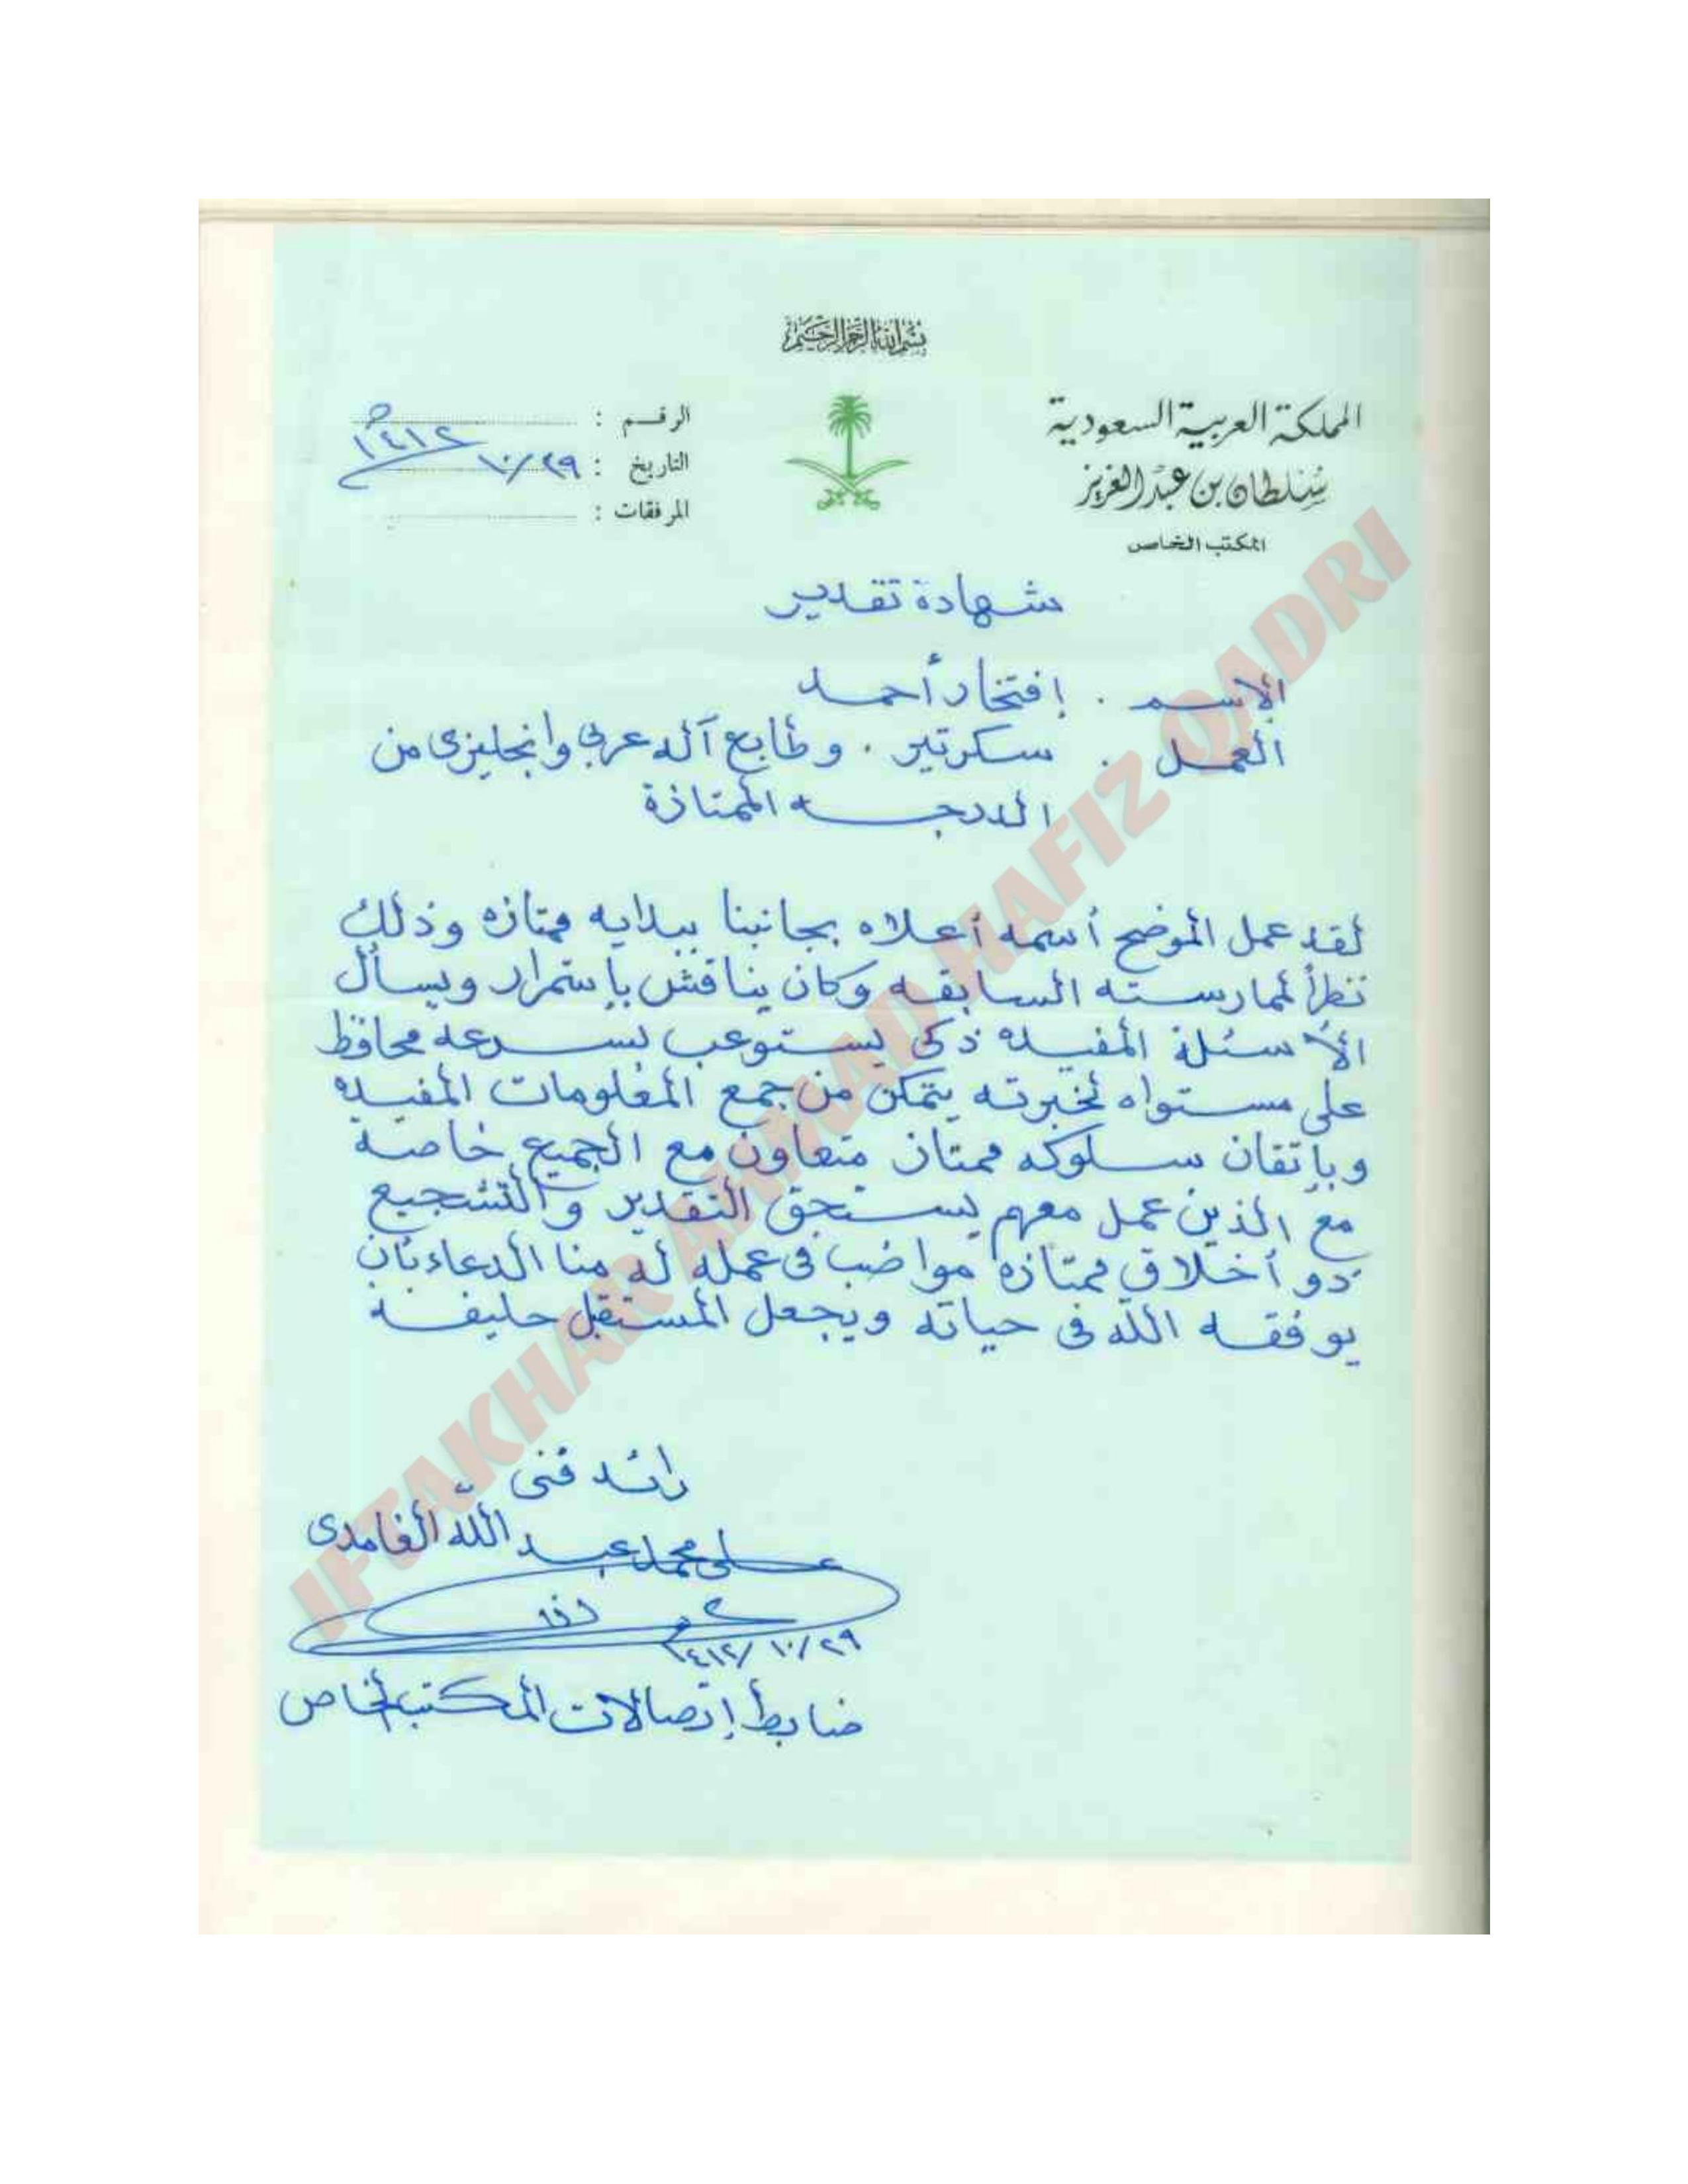 بسم الله الرحمن الرحيم
المملكة العربية السعودية
سلطان بن عبد العزيز
المكتب الخاص
الرقم :
التاريخ : ١٠/٢٩ ١٤١٢ه
المرفقات :
شهادة تقدير
الإسم . إفتخار أحمد
العمل . سكرتير . وطابع آله عربي وانجليزى من
الدرجه الممتازة
لقد عمل الموضح أسمه أعلاه بجانبنا ببدايه ممتازه وذلك
نظراً لممارسته السابقه وكان يناقش بإستمرار ويسأل
الأسئلة المفيده ذكى يستوعب بسرعه محافظ
على مستواه لخبرته يتمكن من جمع المعلومات المفيده
وبإتقان سلوكه ممتاز متعاون مع الجميع خاصة
مع الذين عمل معهم يستحق التقدير والتشجيع
ذو أخلاق ممتازه مواضب فى عمله له منا الدعاء بأن
يوفقه الله فى حياته ويجعل المستقبل حليفه
رائد فنى
على محمد عبد الله الغامدى
١٤١٢/١٠/٢٩
ضابط إتصالات المكتب الخاص
IFTAKHAR AHMAD HAFIZ QADRI